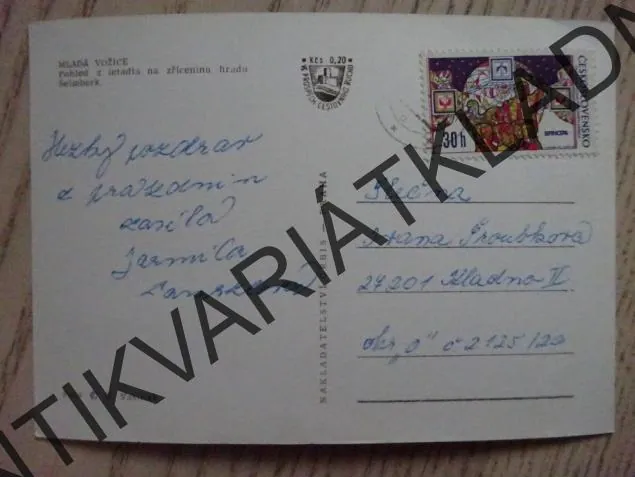 MLADÁ VOŽICE
Pohled z letadla na zříceninu hradu
Šelmberk.
Kčs 0,20
V PROSPĚCH CESTOVNÍHO RUCHU
ČESKOSLOVENSKO
30h
Hezký pozdrav
z prázdnin
zasílá
Jarmila
Slečna
Ivana
27201 Kladno II
č 2125/22
NAKLADATELSTVÍ ORBIS PRAHA
ANTIKVARIÁTKLADNO